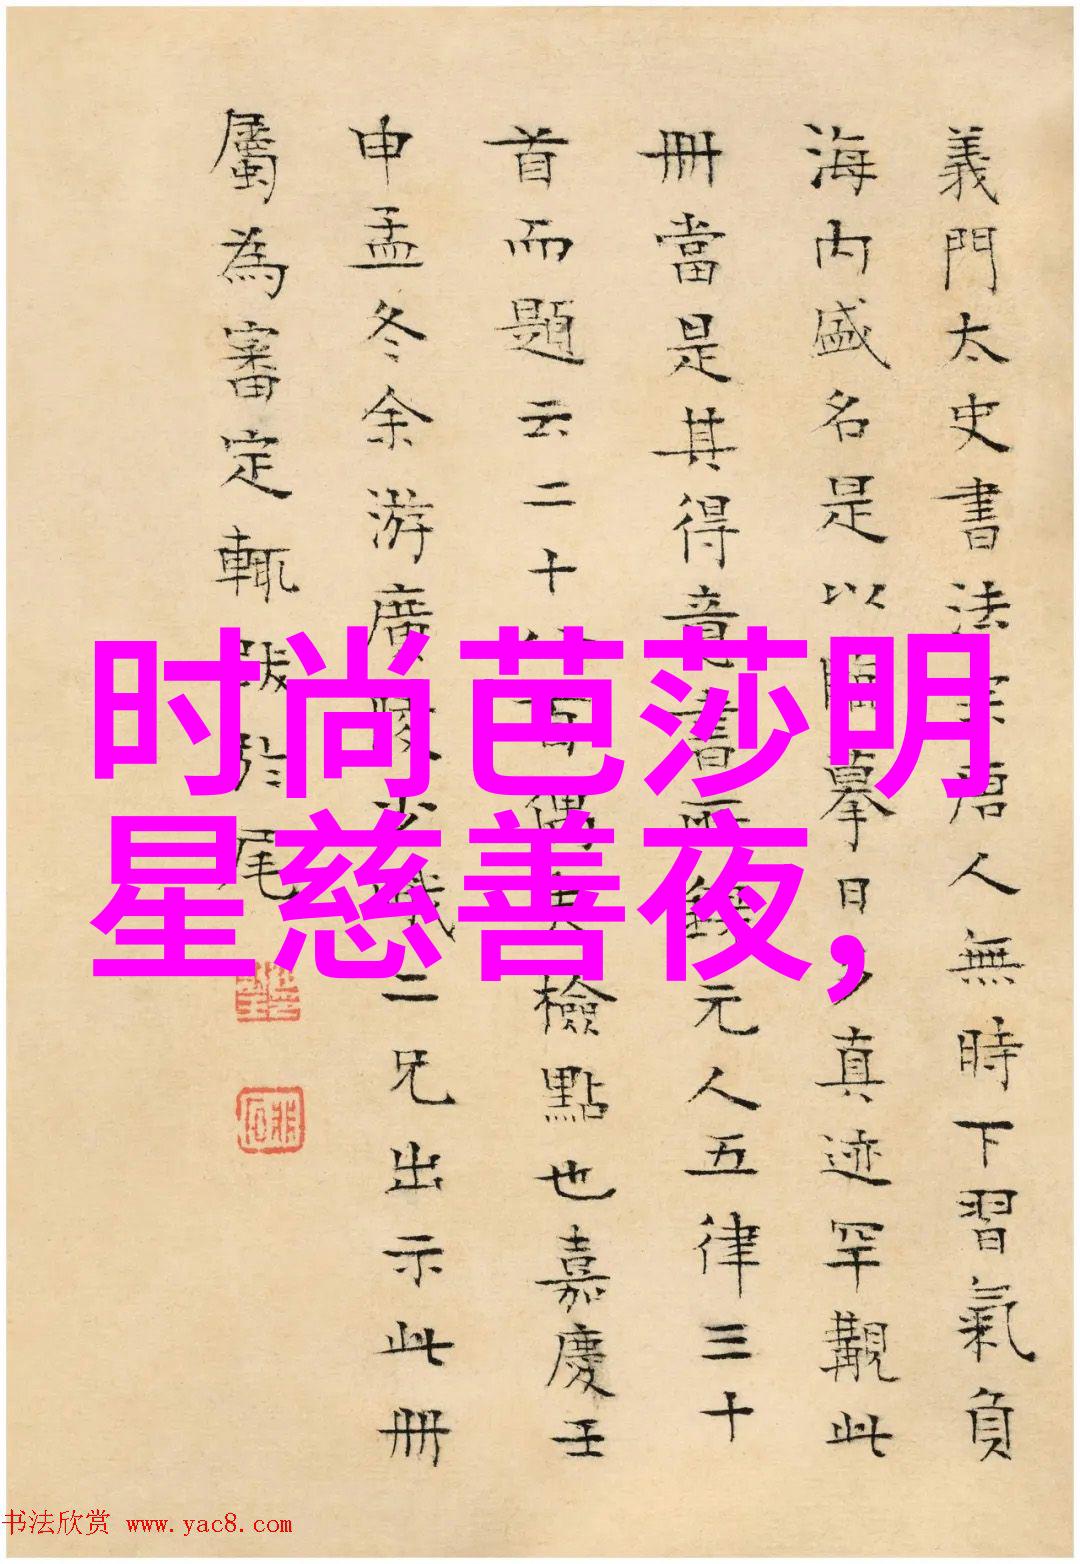 義門太史書法宗唐人無時下習氣負
海内盛名是以臨摹日真迹罕覯此
冊當是其得意書所錄元人五律三十
首而題云二十偶失檢點也嘉慶壬
申孟冬余游廣陵少二兄出示此冊
屬為審定輒跋於尾
时尚芭莎明
星慈善夜,
书法欣赏 www.yac8.com